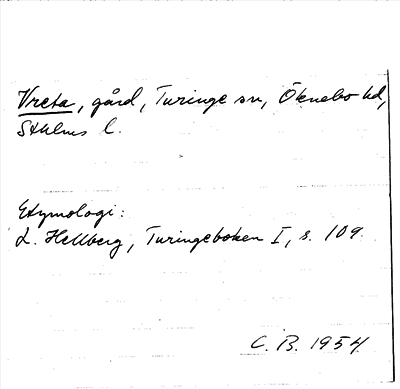 Vreta, gård, Turinge sn, Öknebo hd,
Sthlms l.
Etymologi:
L. Hellberg, Turingeboken I, s. 109.
C. B. 1954